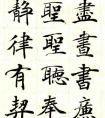 盡畫書廣
聖聖聽奉
靜律有契